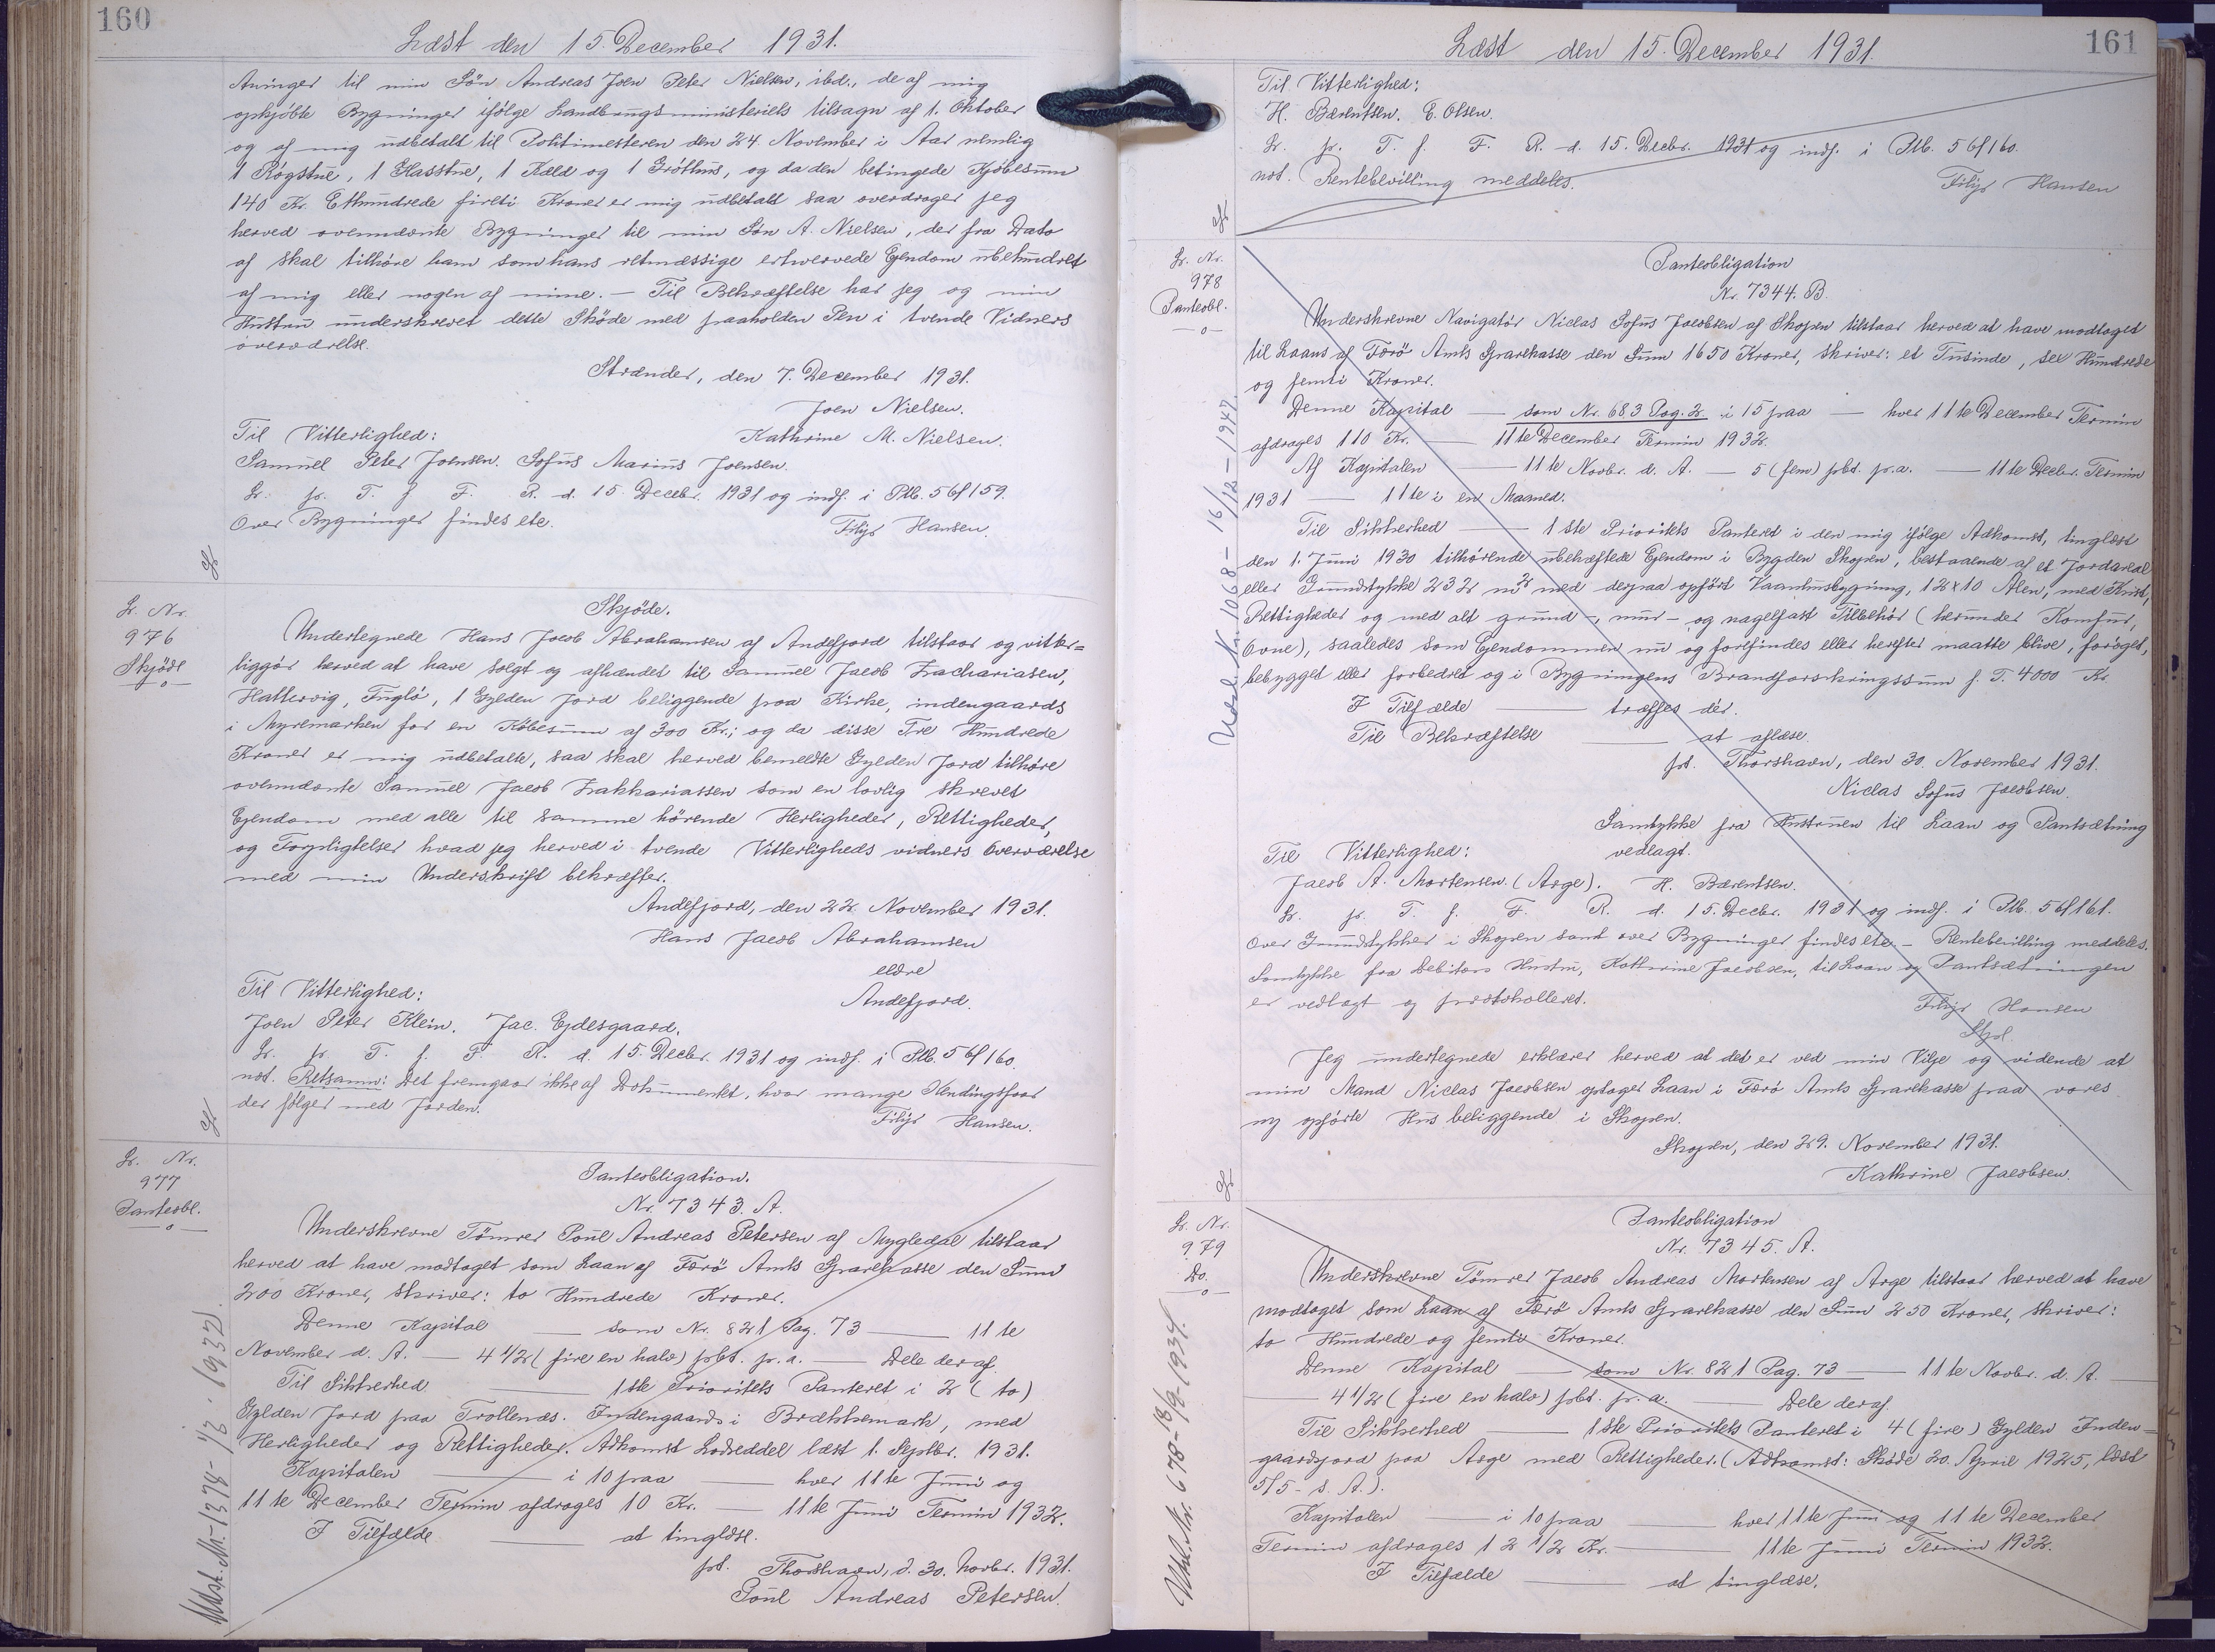 160
Læst den 15. December 1931.
Aninger til min Søn Andreas Joen Peter Nielsen, ibd., de af mig
opkjöbte Bygninger ifölge Landbrugsministeriets tilsagn af 1. Oktober
og af mig udbetalt til Politimesteren den 24. November i Aar nemlig
1 Rögstue, 1 Glasstue, 1 Kæld og 1 Gröthus, og da den betingede Kjöbesum
140 Kr. Ethundrede fireti Kroner er mig udbetalt saa overdrager jeg
herved ovennævnte Bygninger til min Søn A. Nielsen, der fra Dato
af skal tilhöre ham som hans retmæssige erhvervede Ejendom ubehindret
af mig eller nogen af mine. — Til Bekræftelse har jeg og min
Hustru underskrevet dette Sköde med paaholden Pen i tvende Vidners
overværelse.
Strænder, den 7. December 1931.
Joen Nielsen.
Til Vitterlighed: Kathrine M. Nielsen.
Samuel Peter Joensen. Sofus Marius Joensen.
Lr. pr. T. f. F. R. d. 15. Decbr. 1931 og indf. i Ptb. 5 6/159.
Over Bygninger findes etc. Filip Hansen.
Lr. Nr.
976
Skjöde
—o—
Skjöde.
Undertegnede Hans Jacob Abrahamsen af Andefjord tilstaar og vitter=
liggör herved at have solgt og afhændet til Samuel Jacob Zachariasen,
Hattervig, Fuglö, 1 Gylden Jord beliggende paa Kirke, indengaards
i Myremarken for en Köbesum af 300 Kr.; og da disse Tre Hundrede
Kroner er mig udbetalte, saa skal herved bemeldte Gylden Jord tilhöre
ovennævnte Samuel Jacob Zakkariassen som en lovlig skrevet
Ejendom med alle til samme hörende Herligheder, Rettigheder,
og Forpligtelser hvad jeg herved i tvende Vitterligheds vidners Overværelse
med min Underskrift bekræfter.
Andefjord, den 22. November 1931.
Hans Jacob Abrahamsen
eldre
Til Vitterlighed: Andefjord.
Joen Peter Klein. Jac. Ejdesgaard.
Lr. pr. T. f. F. R. d. 15. Decbr. 1931 og indf. i Ptb. 5 6/160.
not. Retsanm: Det fremgaar ikke af Dokumentet, hvor mange Hendingsfaar
der følger med Jorden. Filip Hansen.
Lr. Nr.
977
Panteobl.
—o—
Panteobligation.
Nr. 7343. A.
Underskrevne Tömrer Poul Andreas Petersen af Mygledal tilstaar
herved at have modtaget som Laan af Færö Amts Sparekasse den Sum
200 Kroner, skriver: to Hundrede Kroner.
Denne Kapital — som Nr. 821 Pag. 73 — 11 te
November d. A. — 4 1/2 (fire en halv) pct. p.a. — Dele deraf.
Til Sikkerhed — 1ste Prioritets Panteret i 2 (to)
Gylden Jord paa Trollenæs. Indengaards i Brækkemark, med
Herligheder og Rettigheder. Adkomst Lodseddel læst 1. Septbr. 1931.
Kapitalen — i 10 paa — hver 11te Juni og
11te December Termin afdrages 10 Kr. — 11te Juni Termin 1932.
I Tilfælde — at tinglæse.
pt. Thorshavn, d. 30. Novbr. 1931.
Poul Andreas Petersen.
Udsl. Nr. 1374 - 1/3 - 1932.
161
Læst den 15. December 1931.
Til Vitterlighed:
H. Bærentsen. E. Olsen.
Lr. pr. T. f. F. R. d. 15. Decbr. 1931 og indf. i Ptb. 5 6/160.
not. Rentebevilling meddeles. Filip Hansen
Lr. Nr.
978
Panteobl.
—o—
Panteobligation
Nr. 7344. B.
Underskrevne Navigatör Niclas Sofus Jacobsen af Skopen tilstaar herved at have modtaget
til Laans af Færö Amts Sparekasse den Sum 1650 Kroner, skriver: et Tusinde, sex Hundrede
og femti Kroner.
Denne Kapital — som Nr. 683 Pag. 2 i 15 paa — hver 11te December Termin
afdrages 110 Kr. — 11te December Termin 1932.
Af Kapitalen — 11te Novbr. d. A. — 5 (fem) pct. p.a. — 11te Decbr. Termin
1931 — 11te i en Maaned.
Til Sikkerhed — 1ste Prioritets Panteret i den mig ifölge Adkomst, tinglæst
den 1. Juni 1930 tilhörende ubehæftede Ejendom i Bygden Skopen, bestaaende af et Jordareal
eller Grundstykke 232 m2 med derpaa opfört Vaaningsbygning, 12 x 10 Alen, med Kvist,
Rettigheder og med alt grund-, mur- og nagelfast Tilbehör (herunder Komfur,
Ovne), saaledes som Ejendommen nu og forefindes eller herefter maatte blive, foröget,
bebygget eller forbedret og i Bygningens Brandforsikringssum p. T. 4000 Kr.
I Tilfælde — træffes dér.
Til Bekræftelse — at aflæse.
pt. Thorshavn, den 30. November 1931.
Niclas Sofus Jacobsen.
Samtykke fra Hustruen til Laan og Pantsætning
Til Vitterlighed: vedlagt.
Jacob A. Mortensen. (Arge). H. Bærentsen.
Lr. pr. T. f. F. R. d. 15. Decbr. 1931 og indf. i Ptb. 5 6/161.
Over Grundstykker i Skopen samt over Bygninger findes etc. — Rentebevilling meddeles.
Samtykke fra Debitors Hustru, Kathrine Jacobsen, til Laan og Pantsætningen
er vedlagt og protokolleret. Filip Hansen
Jeg undertegnede erklærer herved at det er ved min Vilje og vidende at
min Mand Niclas Jacobsen optager Laan i Færö Amts Sparekasse paa vores
ny opførte Hus beliggende i Skopen.
Skopen, den 29. November 1931.
Kathrine Jacobsen.
Udsl. Nr. 1068 - 16/12 - 1947.
Lr. Nr.
979
Do.
—o—
Panteobligation
Nr. 7345. A.
Underskrevne Tömrer Jacob Andreas Mortensen af Arge tilstaar herved at have
modtaget som Laan af Færö Amts Sparekasse den Sum 250 Kroner, skriver:
to Hundrede og femti Kroner.
Denne Kapital — som Nr. 821 Pag. 73 — 11te Novbr. d. A. —
— 4 1/2 (fire en halv) pct. p. a. — Dele deraf.
Til Sikkerhed — 1ste Prioritets Panteret i 4 (fire) Gylden Inden=
gaardsjord paa Arge med Rettigheder. (Adkomst: Sköde 20. April 1925, læst
5/5 - s. A.).
Kapitalen — i 10 paa — hver 11te Juni og 11te December
Termin afdrages 12 1/2 Kr. — 11te Juni Termin 1932.
I Tilfælde — at tinglæse.